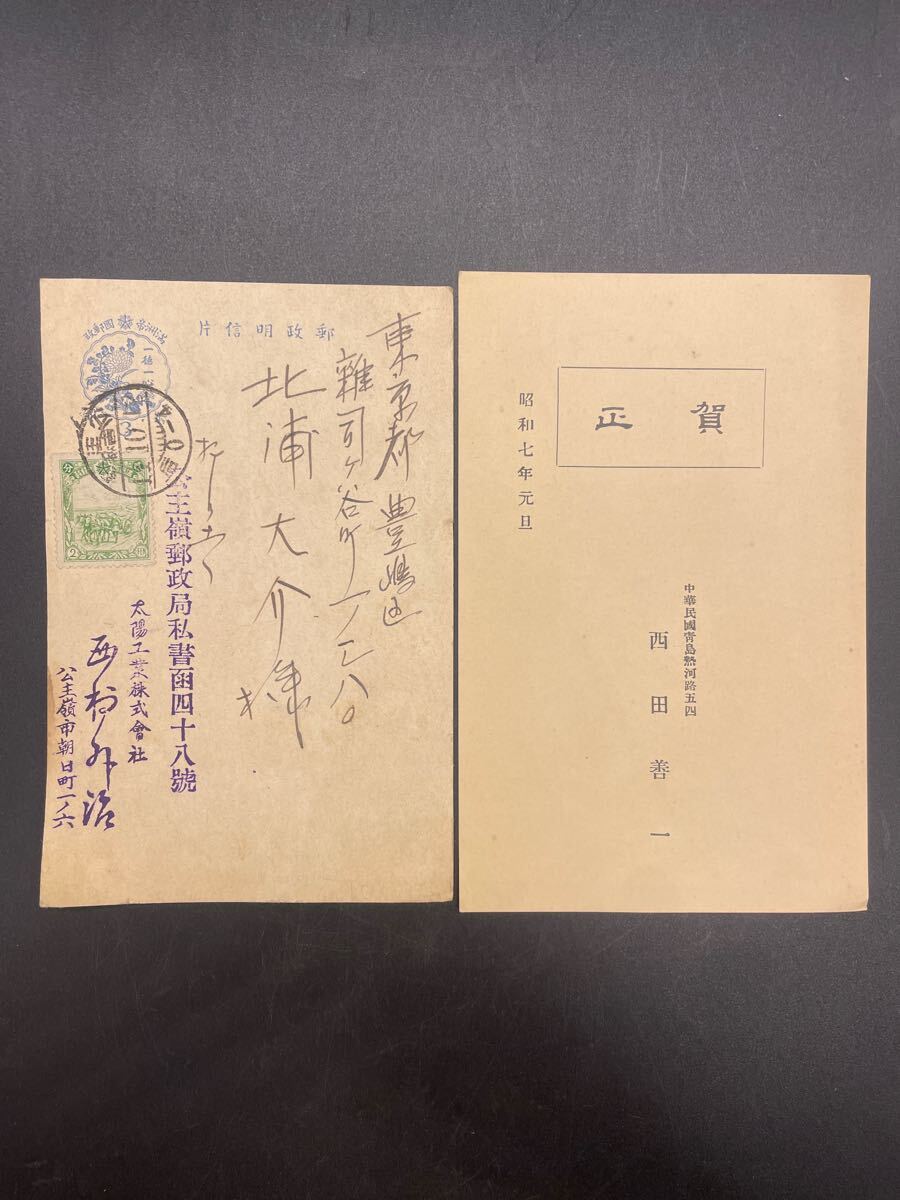 滿洲帝國郵政
郵政明信片
一德一心
3
2
東京都豊島区
雜司ヶ谷町一ノ二八〇
北浦大介様
公主嶺郵政局私書函四十八號
太陽工業株式會社
公主嶺市朝日町一ノ六
賀正
昭和七年元旦
中華民國青島熱河路五四
西田善一